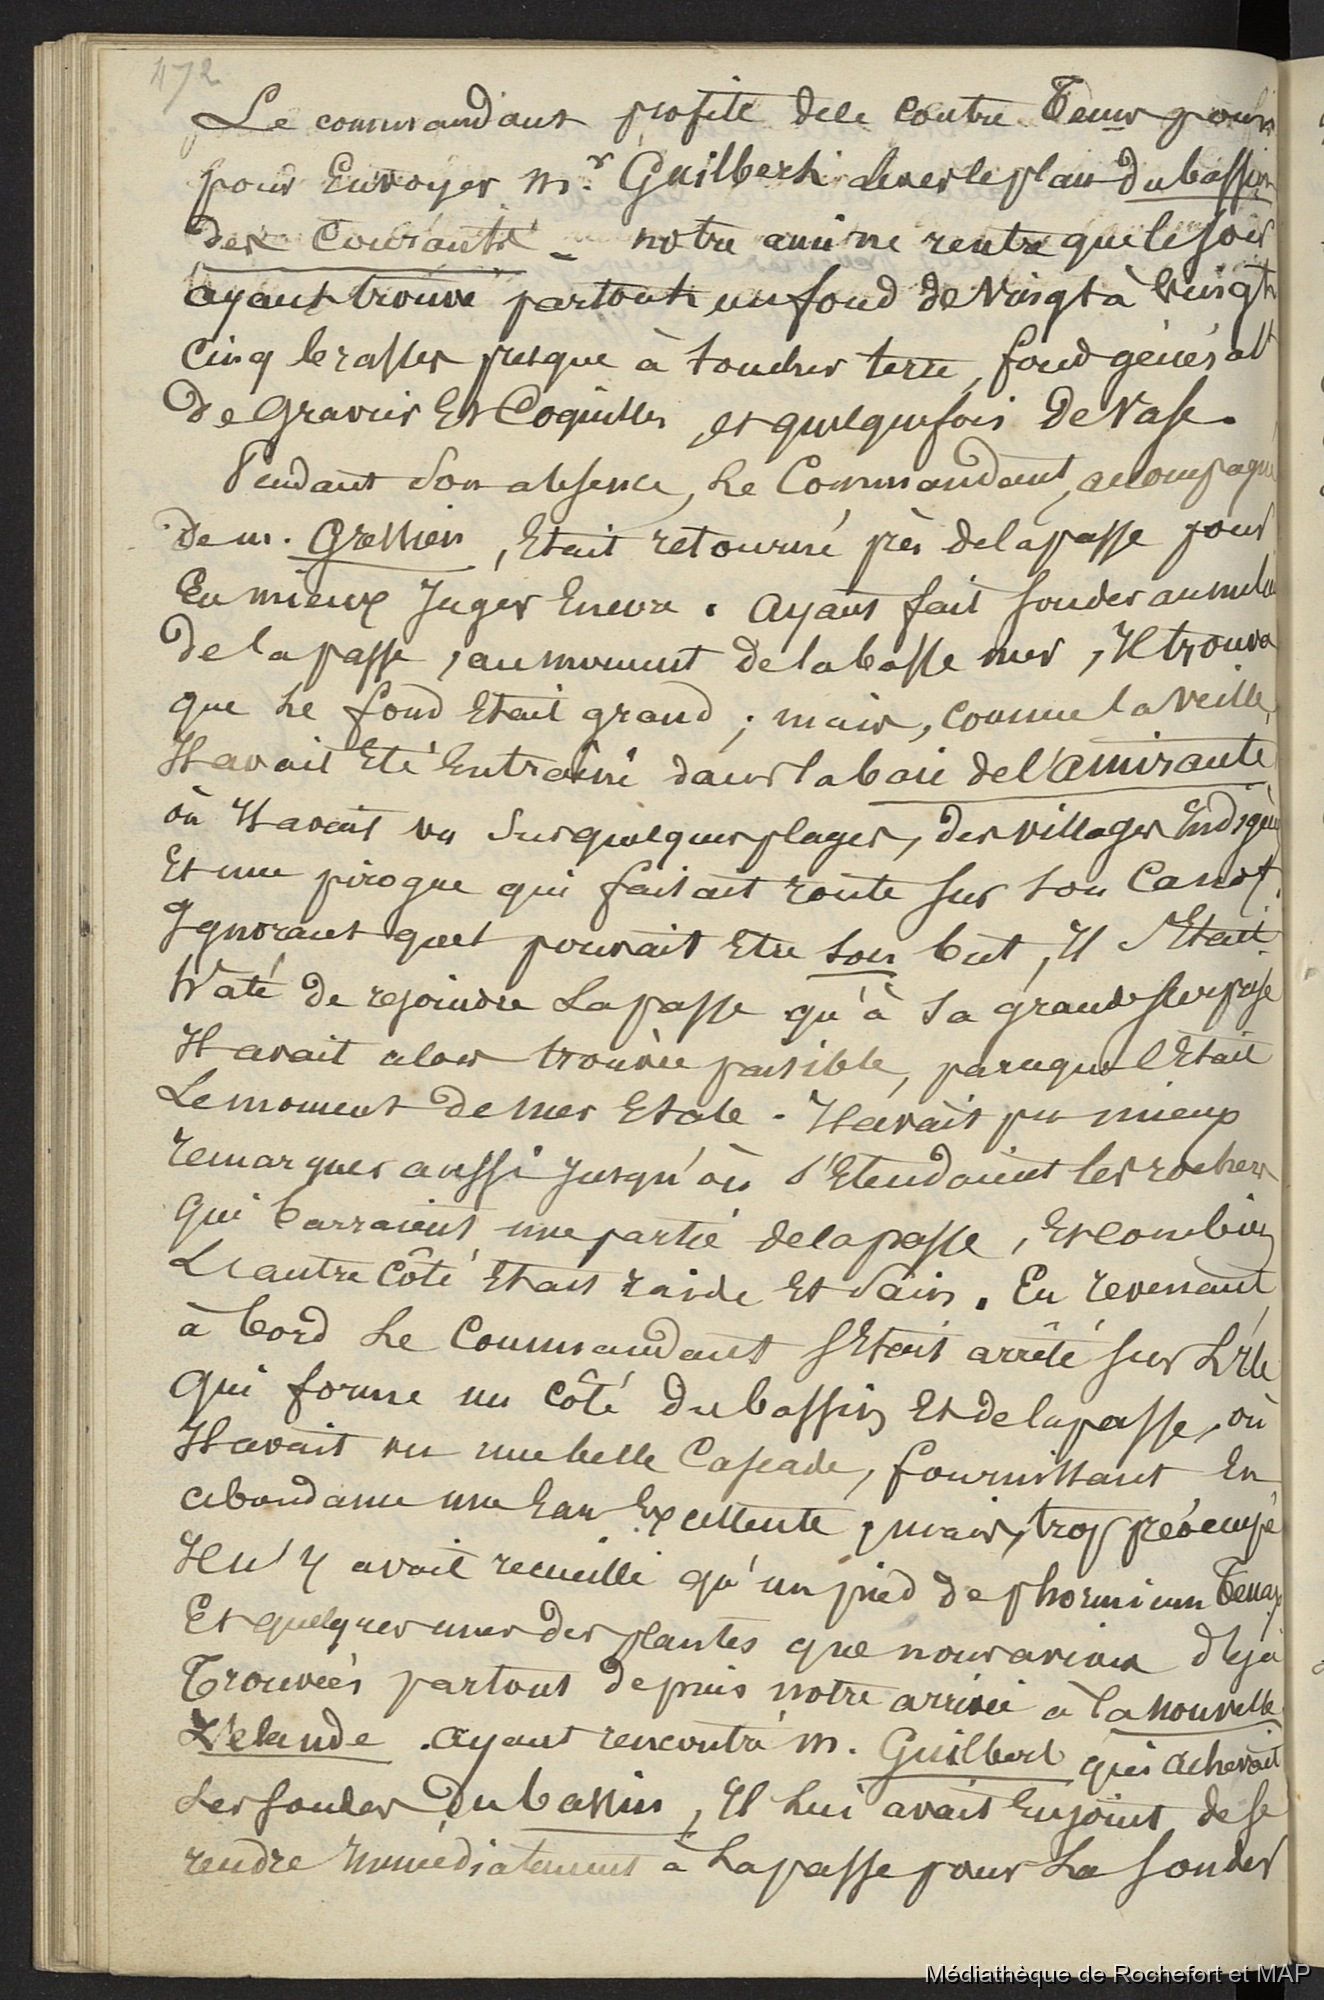 472
Le commandant profite de ce contre tems pour
pour Envoyer M.r Guilbert lever le plan du bassin
des Courants - notre ami ne rentre que le soir
ayant trouvé partout un fond de vingt à vingt
cinq brasses presque à toucher terre, fond général
De gravier Et Coquilles, et quelquefois De Vase.
Pendant Son absence, Le Commandant, accompagné
De m. Gressien, Etait retourné près de la passe pour
En mieux Juger Encore. Ayant fait sonder au milieu
De la passe, au moment de la basse mer, Il trouva
que Le fond Etait grand ; mais, comme la Veille,
Il avait Eté Entrainé dans la baie de l'amirauté
où Il avait vu Sur quelques plages, des villages Indigènes
Et une pirogue qui faisait route sur son Canot.
Ignorant quel pouvait Etre son but, Il s'Etait
hâté de rejoindre La passe qu'à sa grande surprise
Il avait alors trouvée paisible, parceque c'Etait
Le moment De mer Etale. Il avait pu mieux
remarquer aussi jusqu'où s'Etendaient les rochers
qui barraient une partie de la passe, Et combien
L'autre Côté Etait raide Et Sain. En revenant
à bord Le Commandant s'Etait arrêté sur L'île
qui forme un côté Du bassin Et de la passe, où
Il avait vu une belle Cascade, fournissant En
abondance une Eau Excellente ; mais, trop préocupé
Il n'y avait recueilli qu'un pied de phormium Tenax
Et quelques unes des plantes que nous avions déjà
Trouvées partout depuis notre arrivée à la nouvelle
Zélande. ayant rencontré M. Guilbert qui achevait
Les sondes Du bassin, Il Lui avait Enjoint de se
rendre Immédiatement à La passe pour La sonder
Médiathèque de Rochefort et MAP